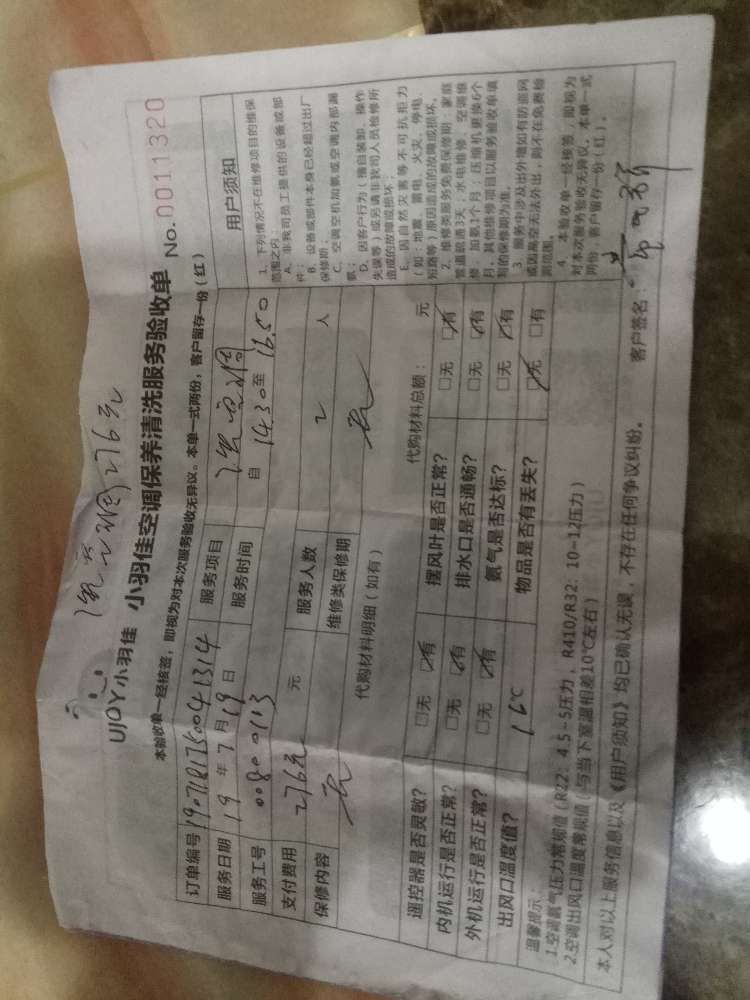 空调276元
UJOY小羽佳 小羽佳空调保养清洗服务验收单 No. 0011320
本验收单一经核签，即视为对本次服务验收无异议。本单一式两份，客户留存一份（红）
订单编号 1907181750041314 服务项目 空调
服务日期 19 年 7 月 19 日 服务时间 自 14.30 至 16.50
服务工号 00800113
支付费用 276元 元 服务人数 2 人
保修内容 无 维修类保修期 无
代购材料明细（如有） 代购材料总额： 元
遥控器是否灵敏？ □无 ☑有 摆风叶是否正常？ □无 ☑有
内机运行是否正常？ □无 ☑有 排水口是否通畅？ □无 ☑有
外机运行是否正常？ □无 ☑有 氨气是否达标？ □无 ☑有
出风口温度值？ 16℃ 物品是否有丢失？ ☑无 □有
温馨提示：
1.空调氨气压力常规值（R22：4.5-5压力 R410/R32：10-12压力）
2.空调出风口温度常规值（与当下室温相差10℃左右）
本人对以上服务信息以及《用户须知》均已确认无误，不存在任何争议纠纷。 客户签名：
用户须知
1、下列情况不在维修项目的维保
范围之内：
A、非我司员工提供的设备或部
件；
B、设备或部件本身已经超过出厂
保修期；
C、空调空机加氨或空调内部漏
氨；
D、因客户行为（擅自装卸、操作
失误等）或另请非我司人员检修所
造成的故障或损坏；
E、因自然灾害等不可抗拒力
（如：地震、雷电、火灾、停电、
短路等）原因造成的故障或损坏。
2、维修类服务免费保修期：家庭
管道疏通3天；水电维修、空调维
修、加氨1个月；压缩机更换6个
月，其他维修项目以服务验收单填
写的保修期为准。
3、服务中涉及出外墙如有防盗网
或因高空无法外出，则不在免费检
测范围。
4、本验收单一经核签，即视为
对本次服务验收无异议，本单一式
两份，客户留存一份（红）。